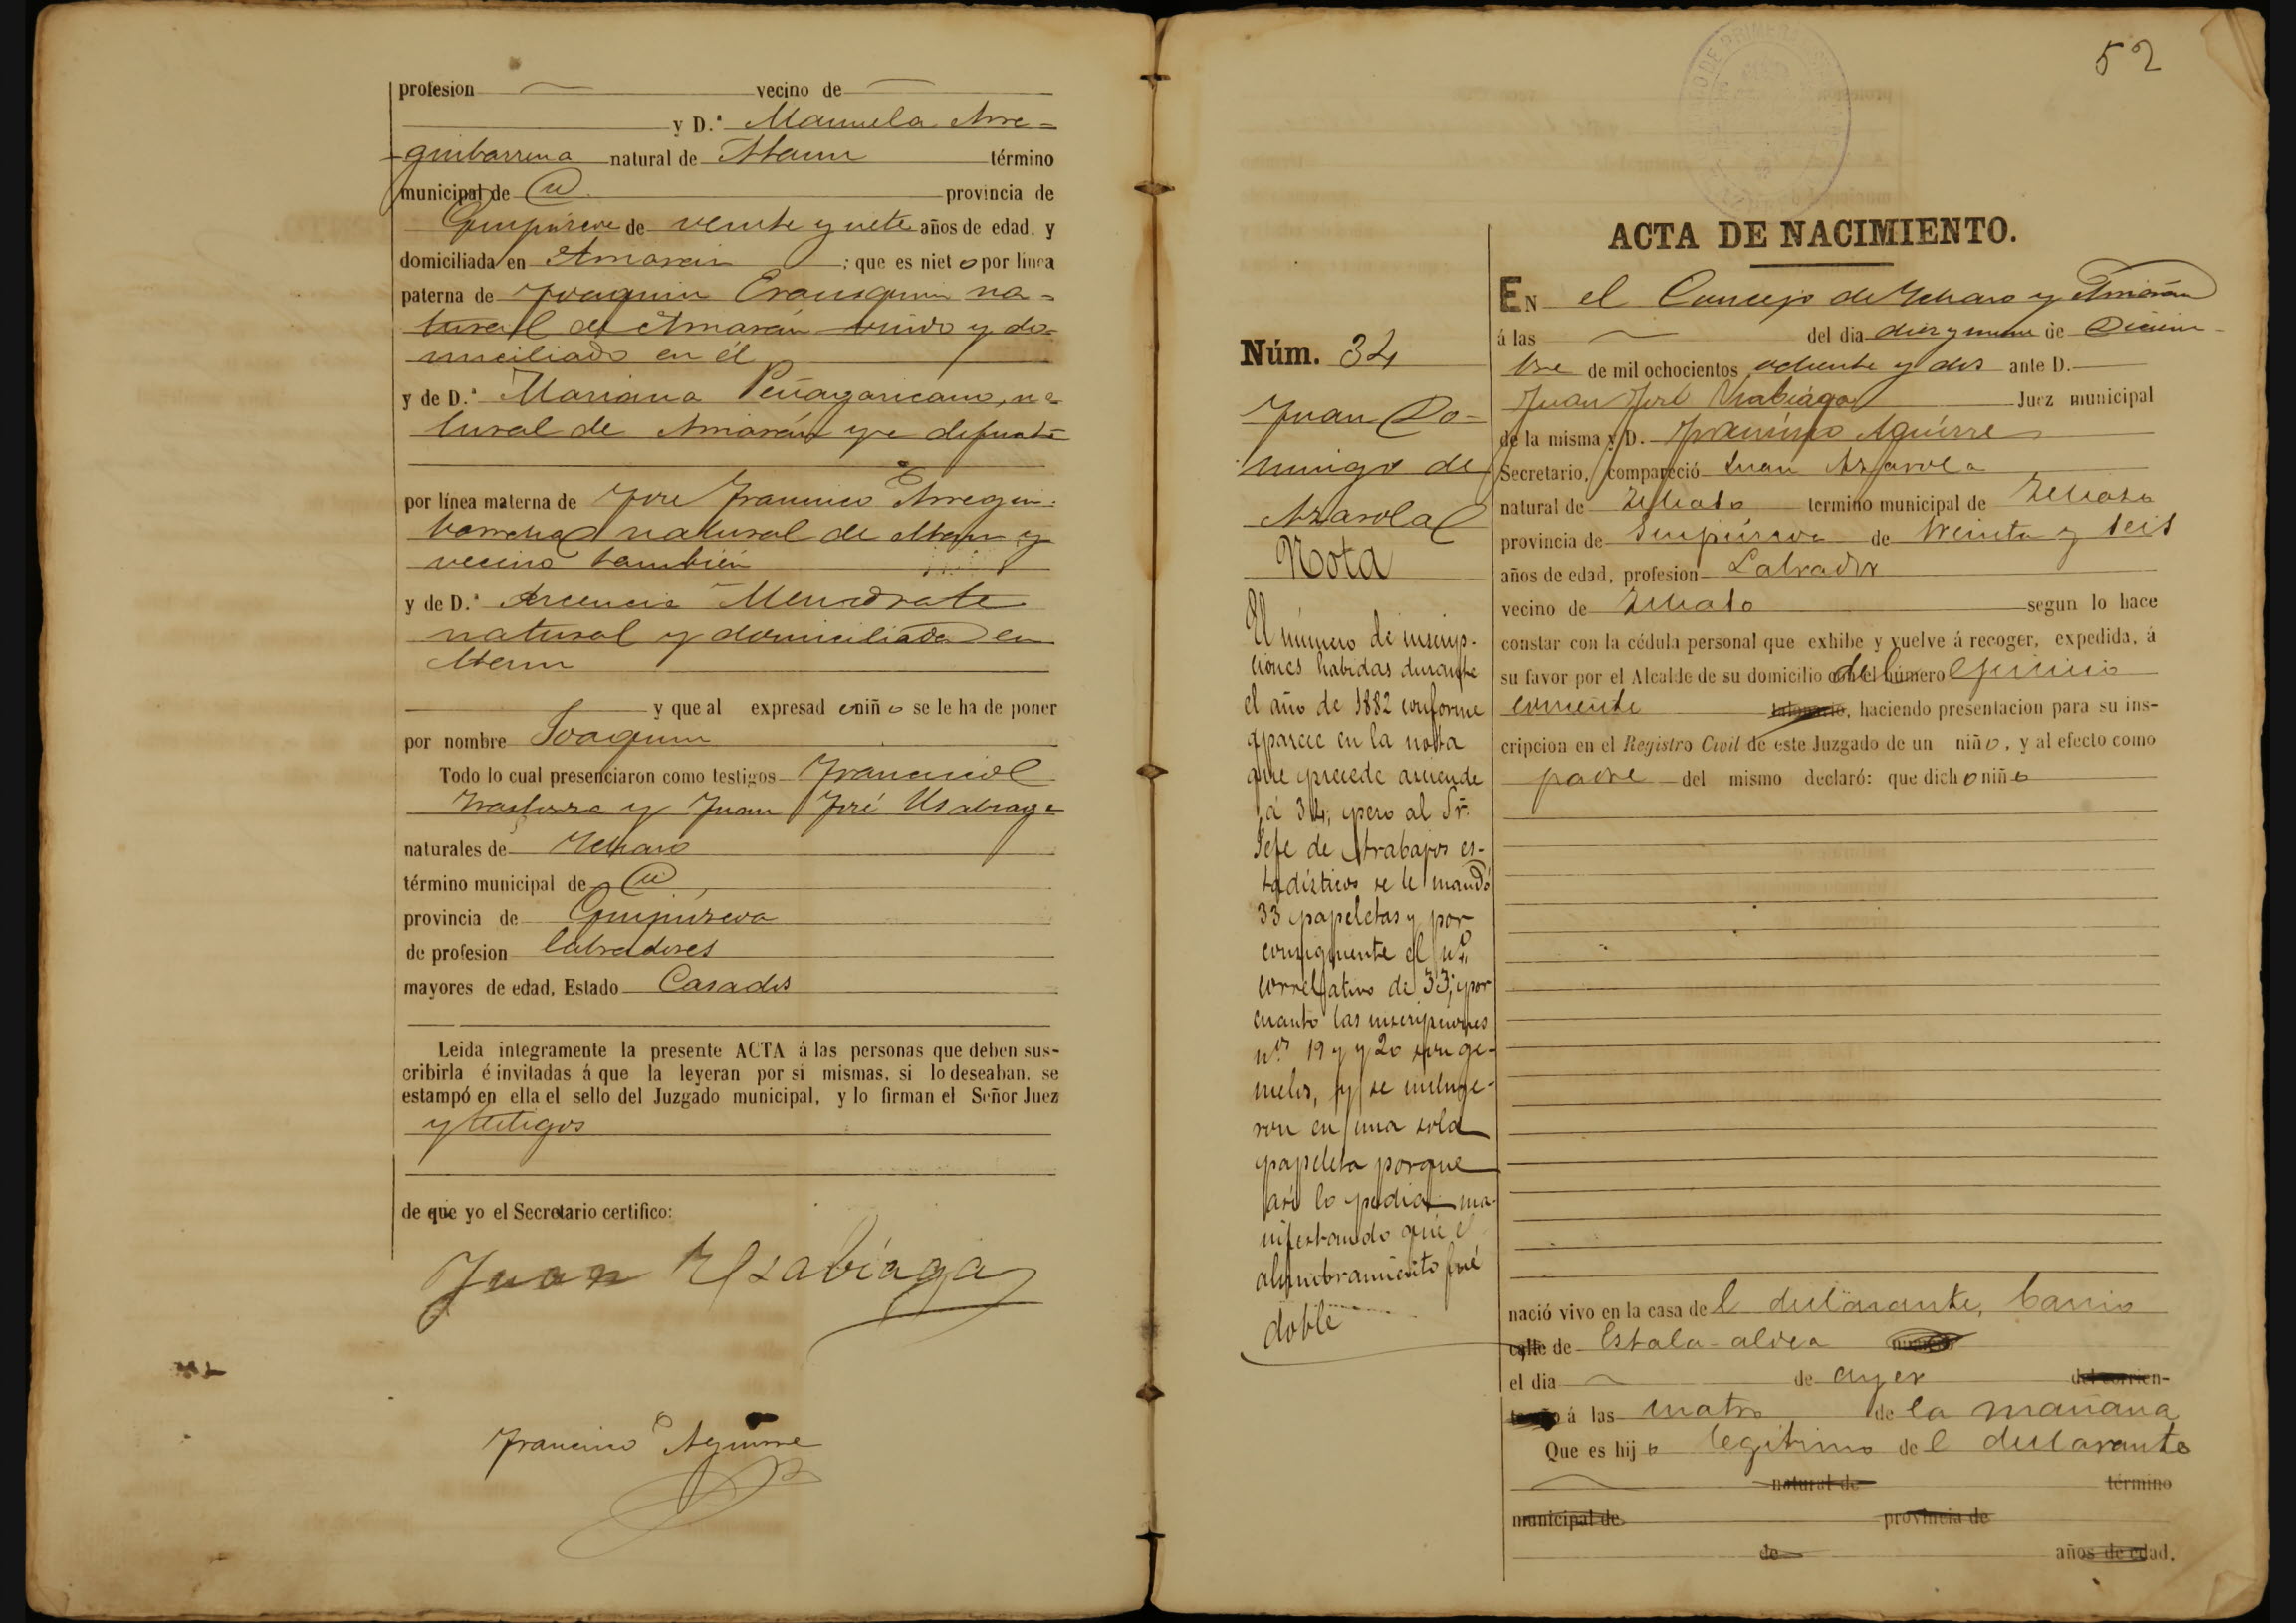 profesion vecino de
y D.ª Manuela Arre=
guibarrena natural de Ataun término
municipal de Id. provincia de
Guipúzcoa de veinte y siete años de edad. y
domiciliada en Amarán ; que es niet o por linea
paterna de Joaquin Erausquin na=
tural de Amarán viudo y do=
miciliado en él
y de D.ª Mariana Peñagaricano, na=
tural de Amarán ya difunta
por línea materna de José Francisco Arregui=
barrena natural de Ataun y
vecino también
y de D.ª Ascencia
natural y domiciliada en
Ataun
y que al expresad o niñ o se le ha de poner
por nombre Joaquin
Todo lo cual presenciaron como testigos Francisco
y Juan José Usabiaga
naturales de Ichaso
término municipal de Id.
provincia de Guipúzcoa
de profesion labradores
mayores de edad, Estado Casados
Leida integramente la presente ACTA á las personas que deben sus-
cribirla é invitadas á que la leyeran por si mismas, si lo deseaban, se
estampó en ella el sello del Juzgado municipal, y lo firman el Señor Juez
y testigos
de que yo el Secretario certifico:
Juan Usabiaga
Francisco Aguirre
52
Núm. 34
Juan Do=
mingo de
Azarola
Nota
El número de inscrip-
ciones habidas durante
el año de 1882 conforme
aparece en la nota
que precede asciende
á 34; pero al Sr.
Jefe de trabajos es-
tadísticos se le mandó
33 papeletas y por
consiguiente el nº
correlativo de 33; por
cuanto las inscripciones
nos 19 y 20 son ge-
melos, y se incluye-
ron en una sola
papeleta porque
así lo pedia ma-
nifestando que el
alumbramiento fué
doble
ACTA DE NACIMIENTO.
EN el Concejo de Ichaso y Amarán
á las del dia diez y nueve de Diciem-
bre de mil ochocientos ochenta y dos ante D.
Juan José Usabiaga Juez municipal
de la misma y D. Francisco Aguirre
Secretario, compareció Juan Azarola
natural de Ichaso termino municipal de Ichaso
provincia de Guipúzcoa de treinta y seis
años de edad, profesion Labrador
vecino de Ichaso segun lo hace
constar con la cédula personal que exhibe y vuelve á recoger, expedida, á
su favor por el Alcalde de su domicilio del número ejercicio
corriente talonario, haciendo presentacion para su ins-
cripcion en el Registro Civil de este Juzgado de un niño, y al efecto como
padre del mismo declaró: que dich o niñ o
nació vivo en la casa de l declarante, barrio
calle de Estala-aldea número
el dia de ayer del corrien-
te año á las cuatro de la mañana
Que es hij o legitimo de l declarante
natural de término
municipal de provincia de
de años de edad.